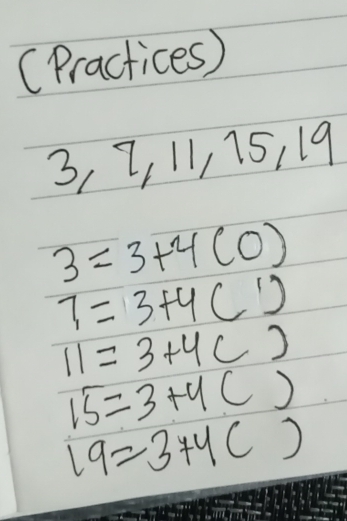 (Practices)
3, 7, 11, 15, 19
3 = 3+4 (0)
7 = 3+4 ( ')
11 = 3+4 ( )
15 = 3+4 ( )
19 = 3+4 ( )